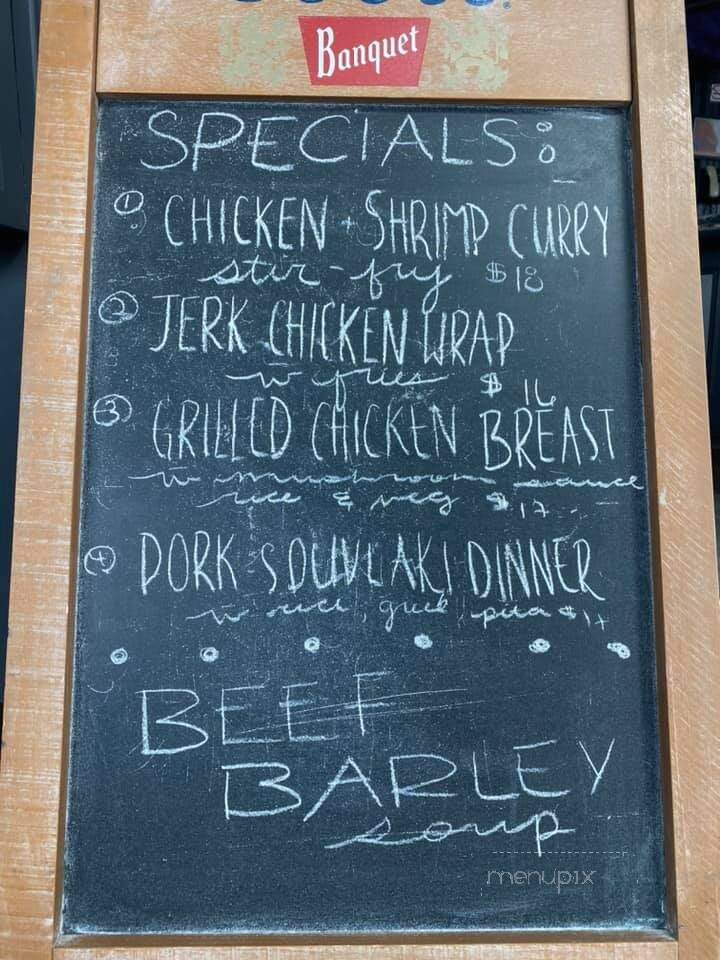 Banquet
SPECIALS:
① CHICKEN + SHRIMP CURRY
stir-fry $18
② JERK CHICKEN WRAP
w fries $16
③ GRILLED CHICKEN BREAST
w mushroom sauce
rice & veg $17
④ PORK SOUVLAKI DINNER
w rice, greek, pita
BEEF
BARLEY
soup
menupix